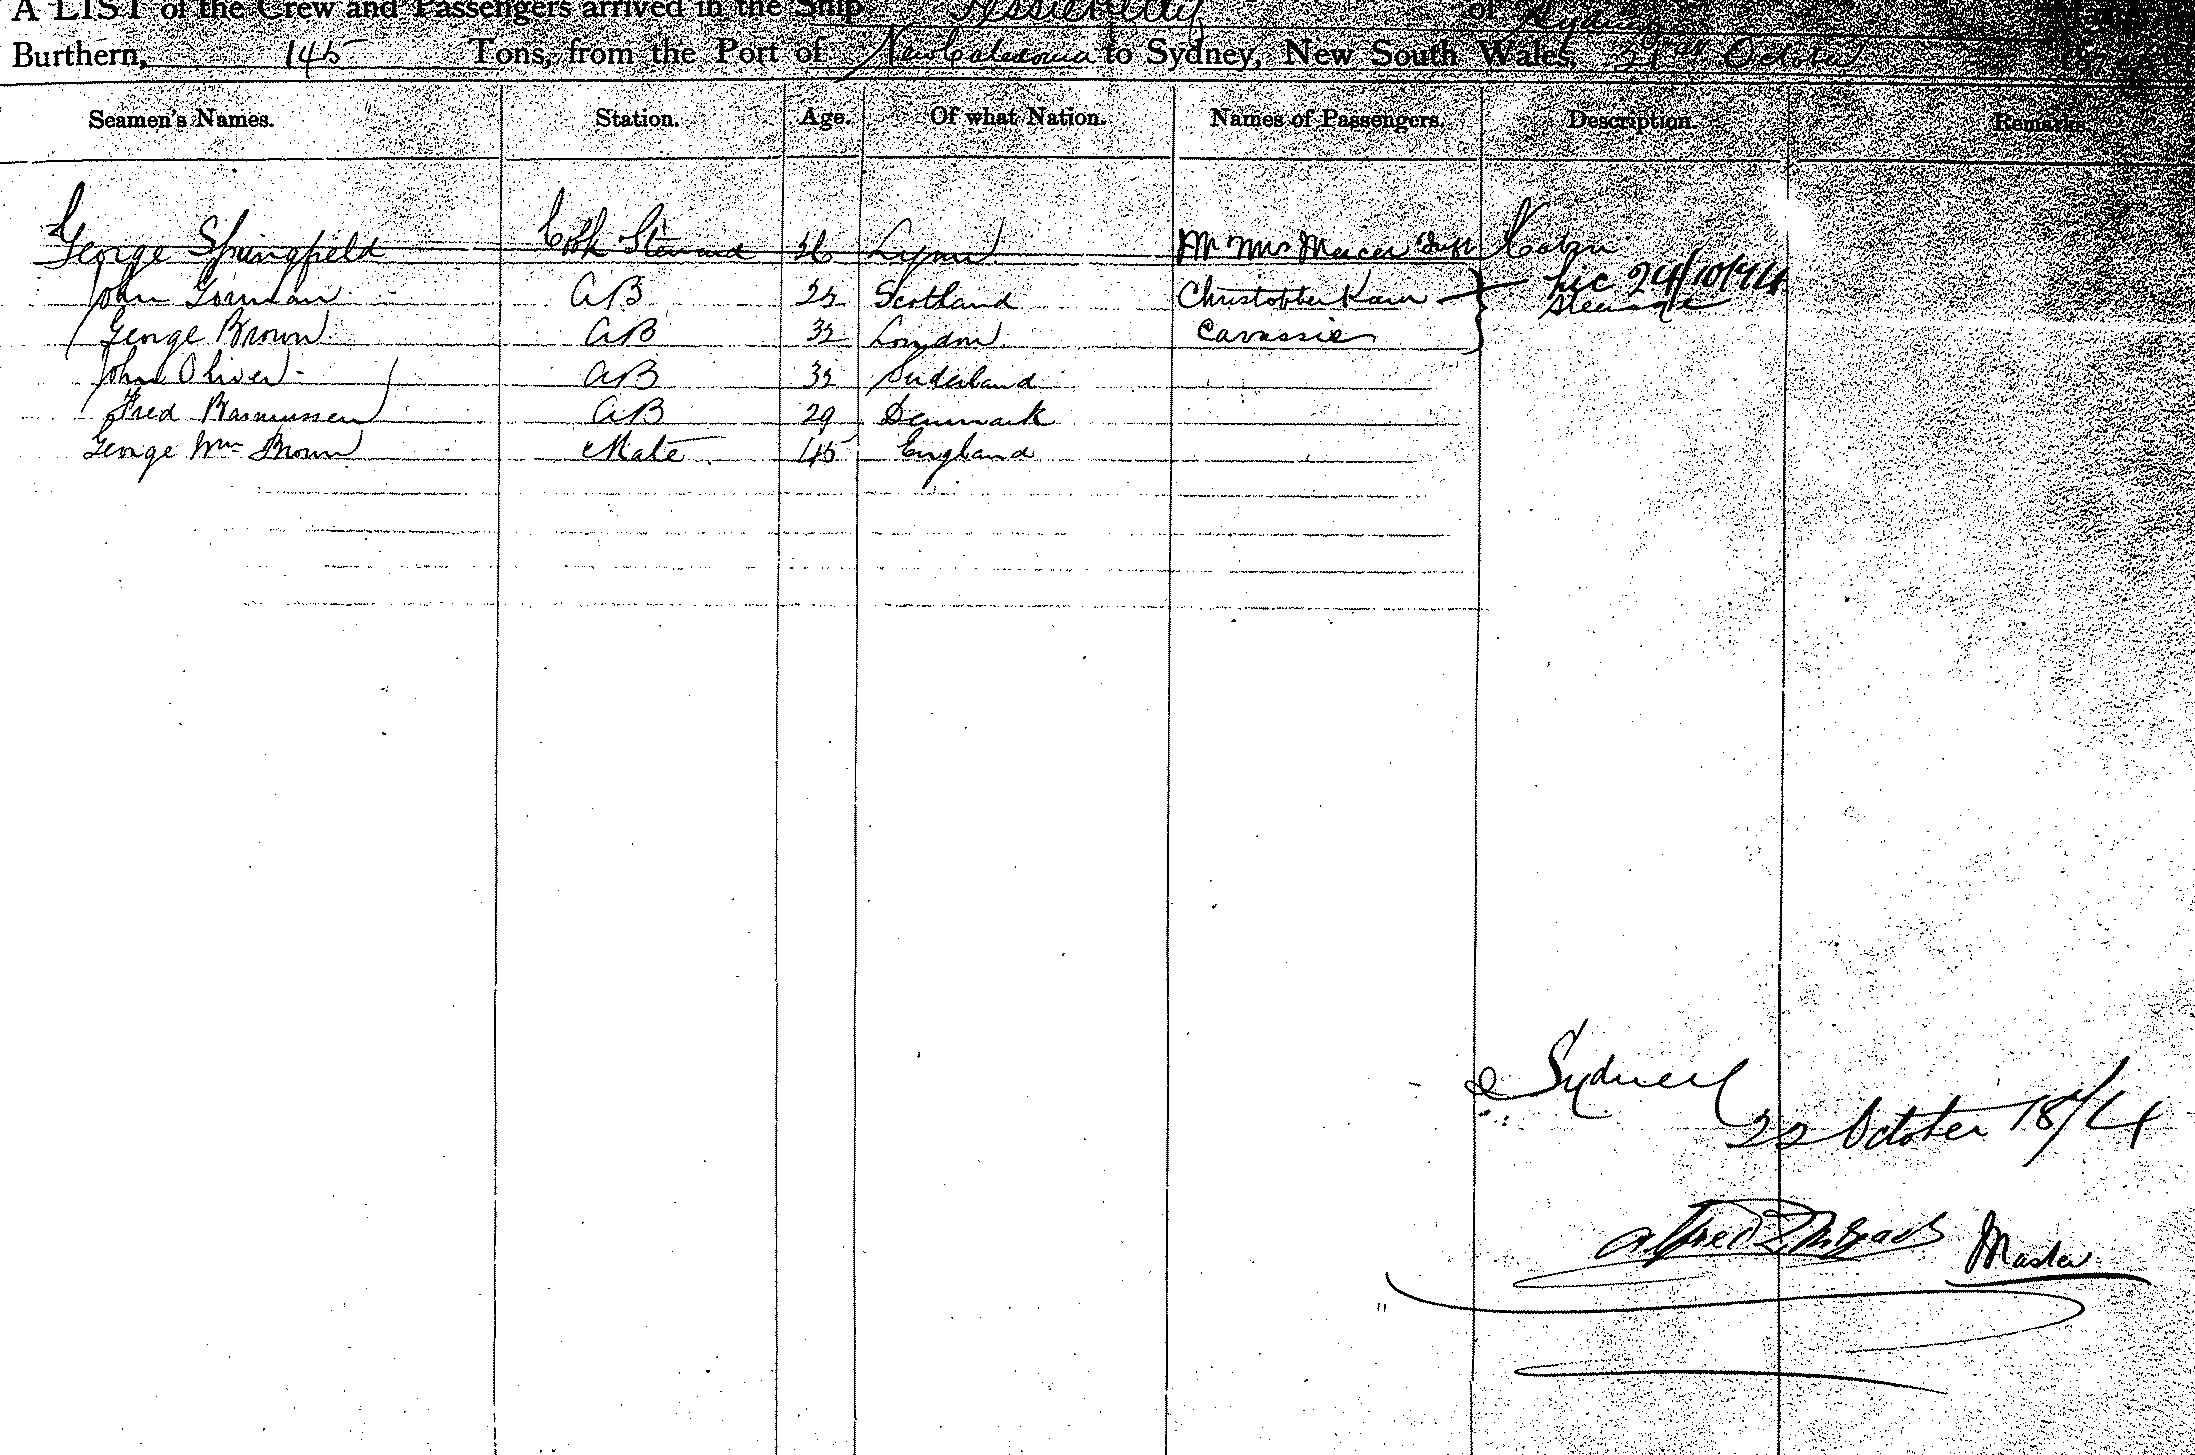 A LIST of the Crew and Passengers arrived in the Ship of Sydney
Burthern, 145 Tons, from the Port of New Caledonia to Sydney, New South Wales, October
Seamen's Names. Station. Age. Of what Nation. Names of Passengers. Description. Remarks.
George Springfield Cook Steward 36 Lynn Mr Mrs Cabin
John Gorman AB 25 Scotland Christopher Lic 24/10/74
Steerage
George Brown AB 32 London Cavassie
John Oliver AB 35 Suderland
Fred Rasmussen AB 29 Denmark
George Wm Brown Mate 45 England
Sydney
22 October 1874
Alfred Master